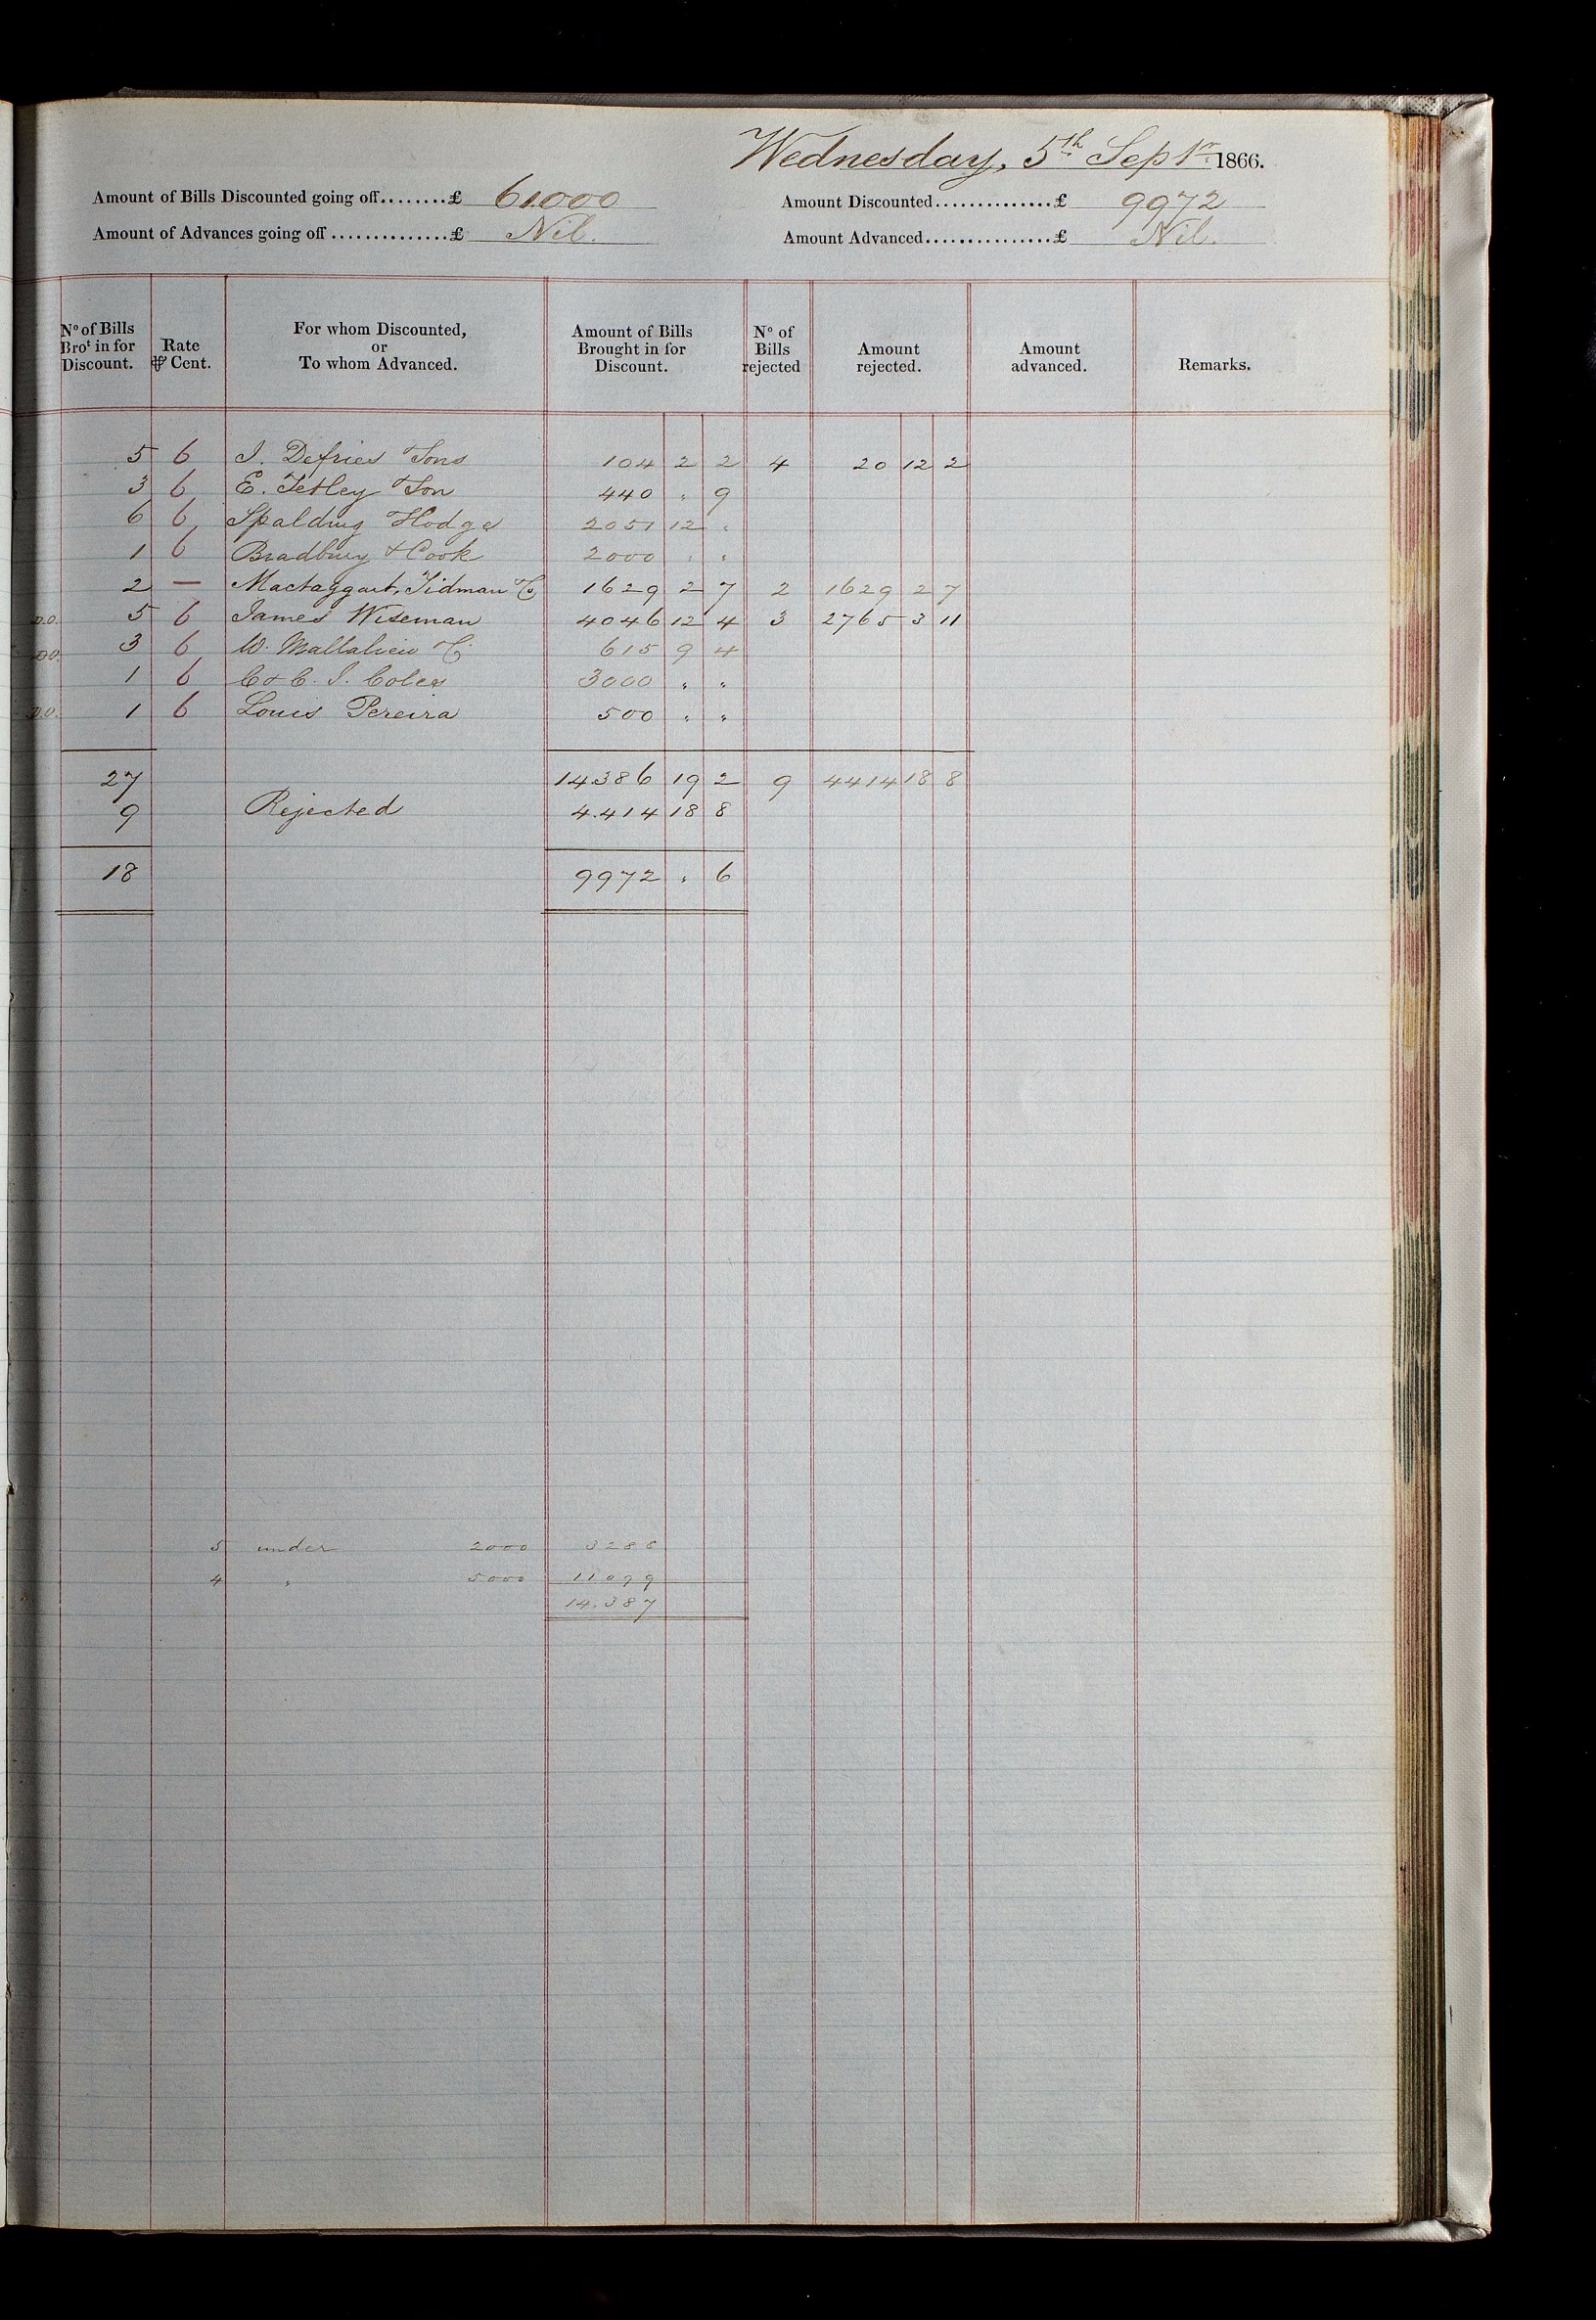 Wednesday, 5th Septr 1866.
Amount of Bills Discounted going off........£ 61.000
Amount Discounted..............£ 9972
Amount of Advances going off..............£ Nil.
Amount Advanced................£ Nil.
No of Bills Brot in for Discount. | Rate ⅌ Cent. | For whom Discounted, or To whom Advanced. | Amount of Bills Brought in for Discount. | No of Bills rejected | Amount rejected. | Amount advanced. | Remarks.
5 6 I. Defries & Sons 104 2 2 4 20 12 2
3 6 E. Tetley & Son 440 " 9
6 6 Spalding & Hodge 2051 12 "
1 6 Bradbury & Cook 2000 " "
2 — Mactaggart, Tidman & Co 1629 2 7 2 1629 2 7
D.O. 5 6 James Wiseman 4046 12 4 3 2765 3 11
D.O. 3 6 W. Mallalieu & Co 615 9 4
1 6 C & C. I. Coles 3000 " "
D.O. 1 6 Louis Pereira 500 " "
27 14.386 19 2 9 4414 18 8
9 Rejected 4.414 18 8
18 9972 " 6
5 under 2000 3288
4 " 5000 11099
14.387